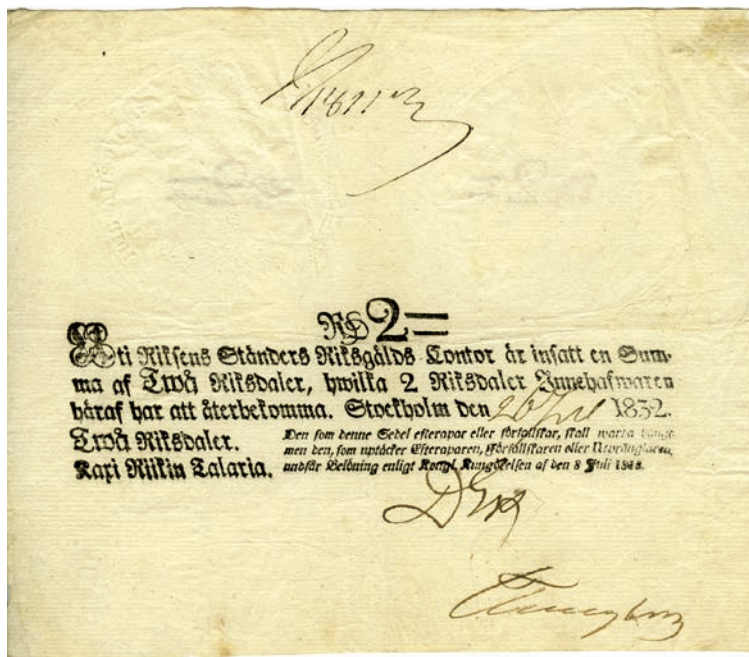 RS 2=
Uti Riksens Ständers Riksgälds Contor är insatt en Sum-
ma af Twå Riksdaler, hwilka 2 Riksdaler Innehafwaren
häraf har att återbekomma. Stockholm den 26 Jul 1832.
Twå Riksdaler.
Kaxi Riikin Talaria.
Den som denne Sedel efterapar eller förfalskar, skall warda
men den, som uptäcker Efteraparen, Förfalskaren eller Utprånglaren,
undfår Belöning enligt Kongl. Kungörelsen af den 8 Juli 1818.